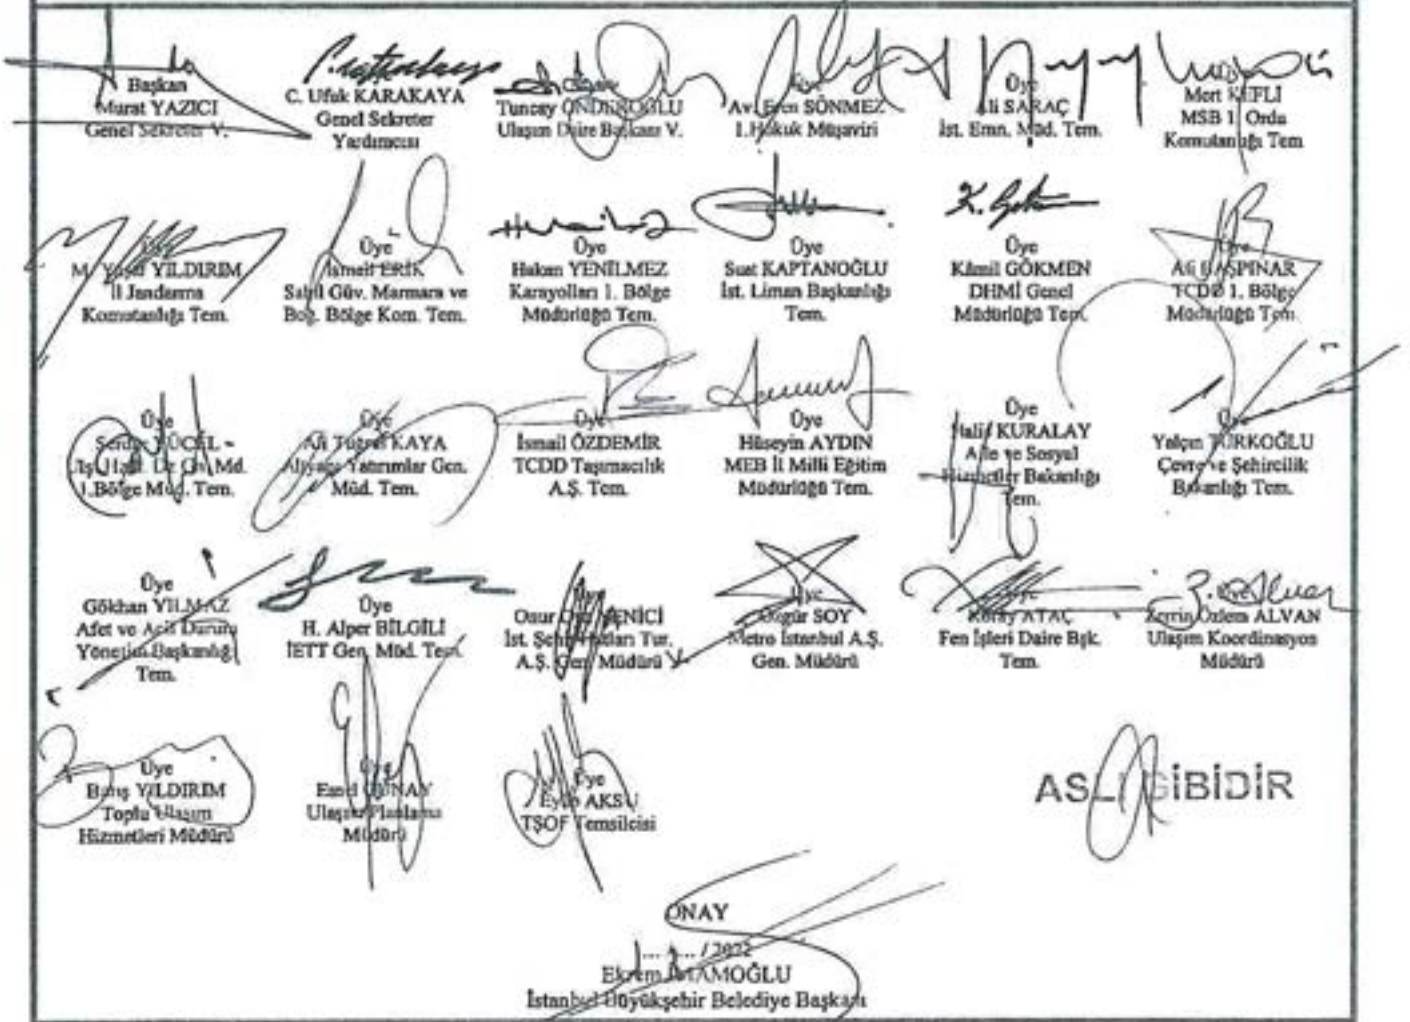 Başkan
Murat YAZICI
Genel Sekreter V.
C. Ufuk KARAKAYA
Genel Sekreter
Yardımcısı
Tuncay ÖNDEROĞLU
Ulaşım Daire Başkanı V.
Üye
Av. Eren SÖNMEZ
1.Hukuk Müşaviri
Üye
Ali SARAÇ
İst. Emn. Müd. Tem.
Üye
Mert KEFLİ
MSB 1. Ordu
Komutanlığı Tem
Üye
M. YILDIRIM
İl Jandarma
Komutanlığı Tem.
Üye
İsmail ERİK
Sahil Güv. Marmara ve
Boğ. Bölge Kom. Tem.
Üye
Hakan YENİLMEZ
Karayolları 1. Bölge
Müdürlüğü Tem.
Üye
Suat KAPTANOĞLU
İst. Liman Başkanlığı
Tem.
K. Gökmen
Üye
Kâmil GÖKMEN
DHMİ Genel
Müdürlüğü Tem.
Üye
Ali BAŞPINAR
TCDD 1. Bölge
Müdürlüğü Tem.
Üye
Serdar YÜCEL
1.Bölge Müd. Tem.
Üye
Ali Tuğrul KAYA
Altyapı Yatırımlar Gen.
Müd. Tem.
Üye
İsmail ÖZDEMİR
TCDD Taşımacılık
A.Ş. Tem.
Üye
Hüseyin AYDIN
MEB İl Milli Eğitim
Müdürlüğü Tem.
Üye
Halil KURALAY
Aile ve Sosyal
Hizmetler Bakanlığı
Tem.
Üye
Yalçın TÜRKOĞLU
Çevre ve Şehircilik
Bakanlığı Tem.
Üye
Gökhan YILMAZ
Afet ve Acil Durum
Yönetim Başkanlığı
Tem.
Üye
H. Alper BİLGİLİ
İETT Gen. Müd. Tem.
Üye
YENİCİ
İst. Şehir Hatları Tur.
A.Ş. Gen. Müdürü
Üye
Özgür SOY
Metro İstanbul A.Ş.
Gen. Müdürü
Üye
Koray ATAÇ
Fen İşleri Daire Bşk.
Tem.
Üye
Zerrin Özlem ALVAN
Ulaşım Koordinasyon
Müdürü
Üye
Barış YILDIRIM
Toplu Ulaşım
Hizmetleri Müdürü
Üye
GÜNAY
Ulaşım Planlama
Müdürü
Üye
Eyüp AKSU
TŞOF Temsilcisi
ASLI GİBİDİR
ONAY
/ 2022
Ekrem İMAMOĞLU
İstanbul Büyükşehir Belediye Başkanı